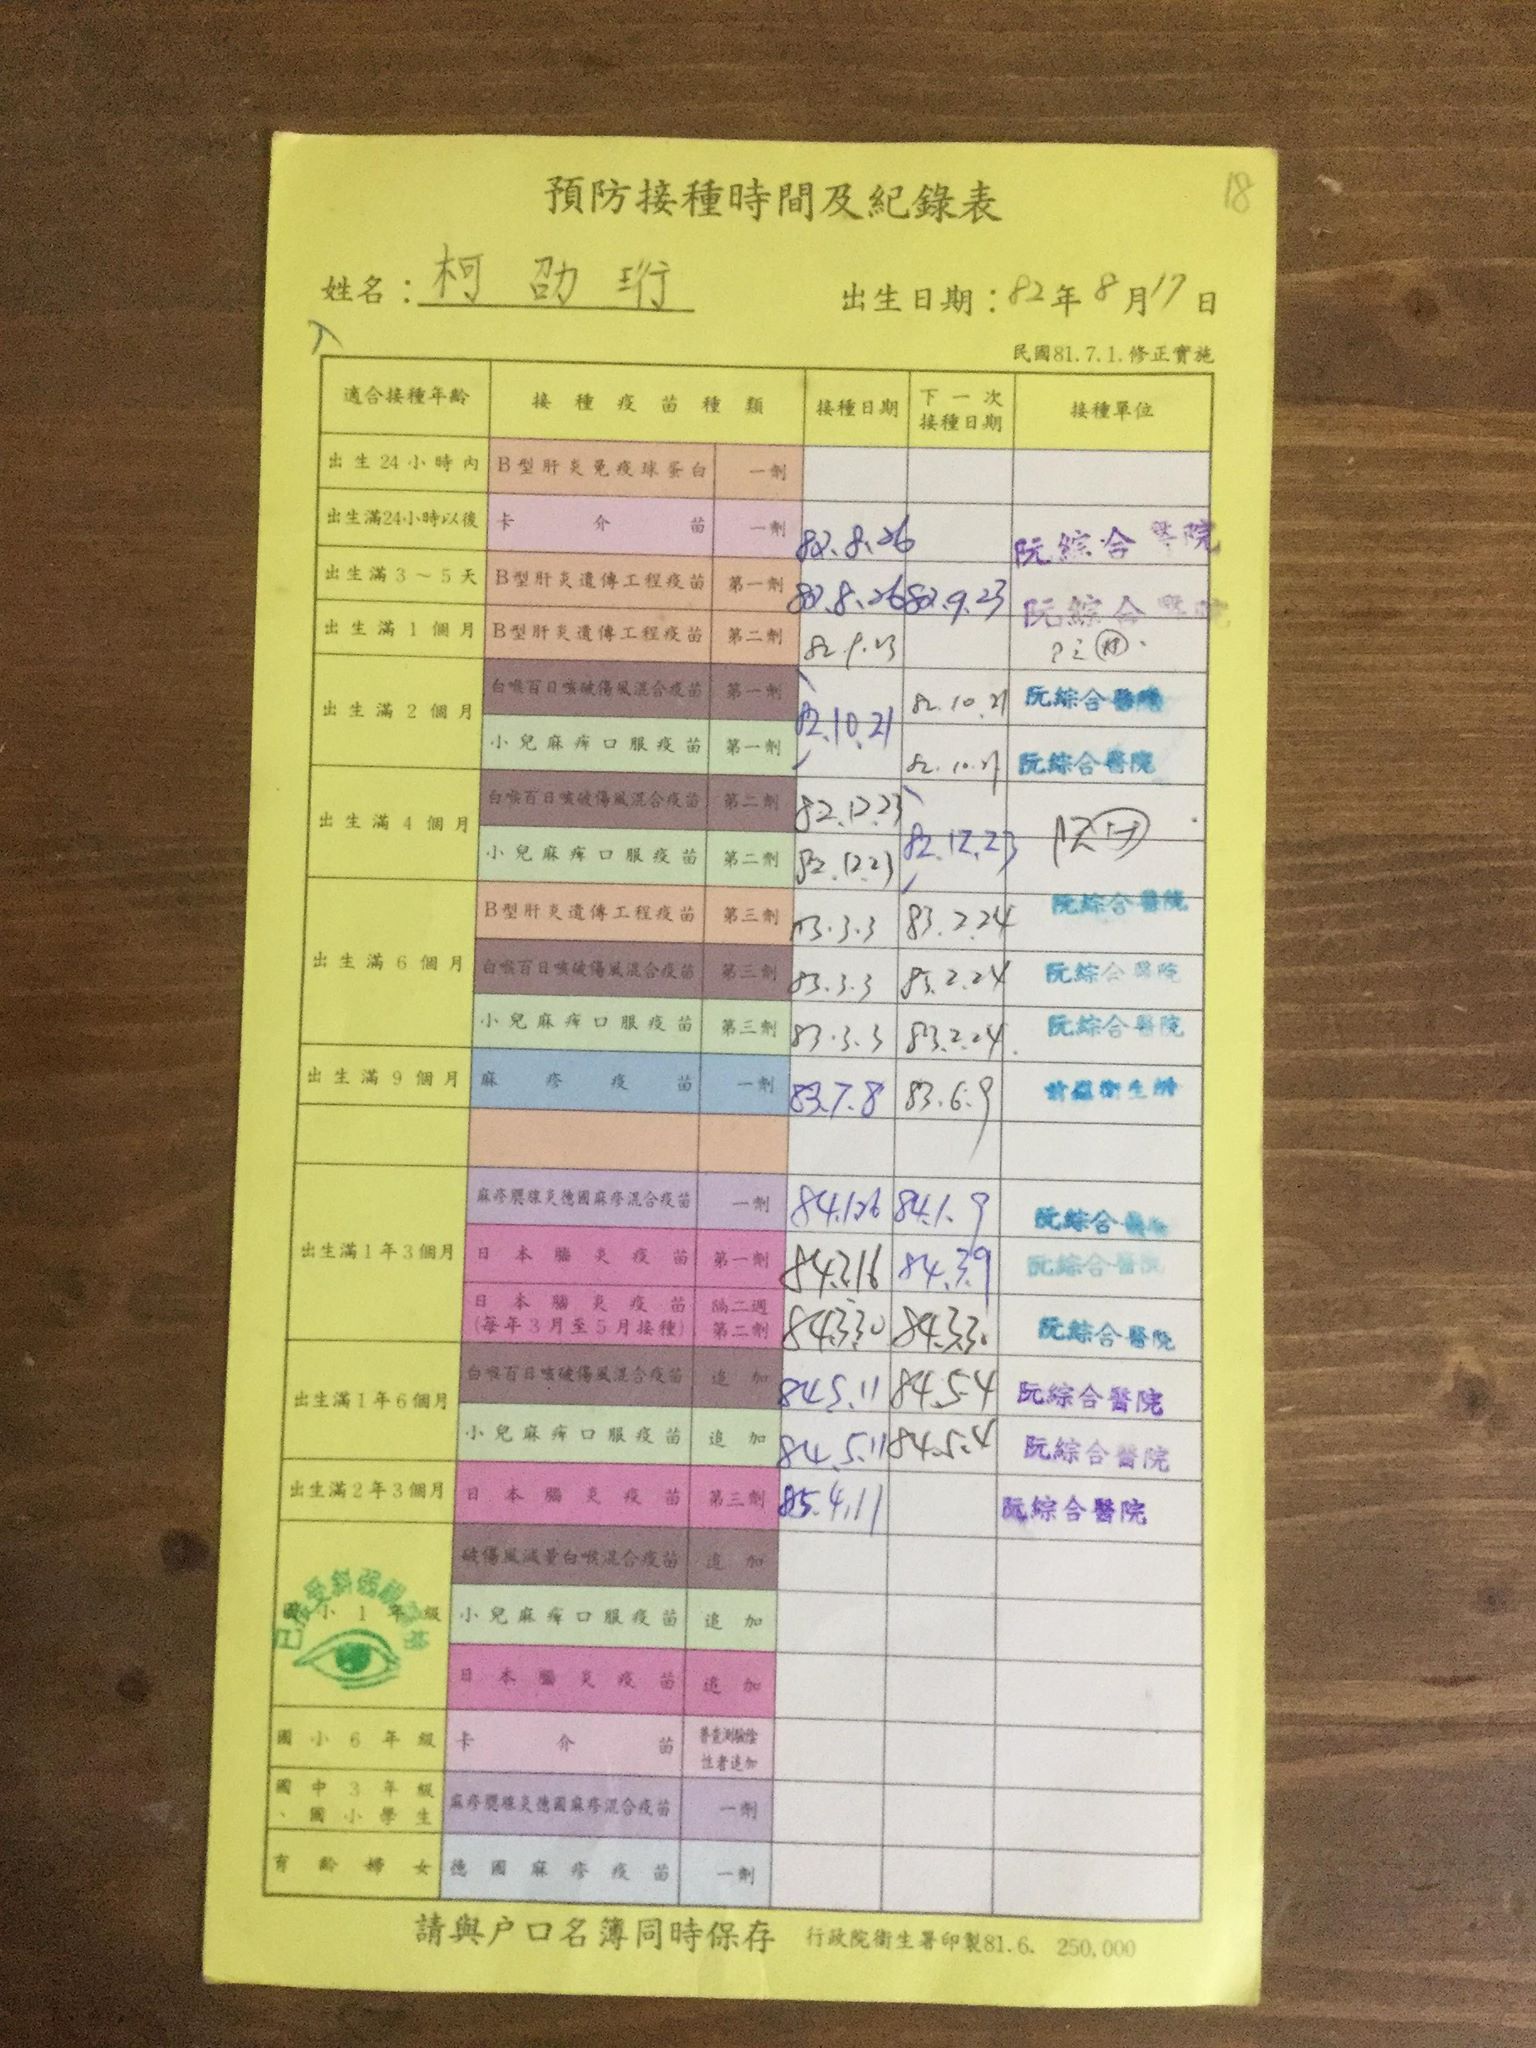 18
預防接種時間及紀錄表
姓名：柯劭珩 出生日期：82年8月17日
民國81.7.1.修正實施
適合接種年齡 接種疫苗種類 接種日期 下一次接種日期 接種單位
出生24小時內 B型肝炎免疫球蛋白 一劑
出生滿24小時以後 卡介苗 一劑 82.8.26 阮綜合醫院
出生滿3～5天 B型肝炎遺傳工程疫苗 第一劑 82.8.26 82.9.23 阮綜合醫院
出生滿1個月 B型肝炎遺傳工程疫苗 第二劑 82.9.23
出生滿2個月 白喉百日咳破傷風混合疫苗 第一劑 82.10.21 82.10.21 阮綜合醫院
小兒麻痺口服疫苗 第一劑 82.10.21 阮綜合醫院
出生滿4個月 白喉百日咳破傷風混合疫苗 第二劑 82.12.23 82.12.23
小兒麻痺口服疫苗 第二劑 82.12.23
出生滿6個月 B型肝炎遺傳工程疫苗 第三劑 83.3.3 83.2.24 阮綜合醫院
白喉百日咳破傷風混合疫苗 第三劑 83.3.3 83.2.24 阮綜合醫院
小兒麻痺口服疫苗 第三劑 83.3.3 83.2.24 阮綜合醫院
出生滿9個月 麻疹疫苗 一劑 83.7.8 83.6.9
麻疹腮腺炎德國麻疹混合疫苗 一劑 84.1.26 84.1.9 阮綜合醫院
出生滿1年3個月 日本腦炎疫苗 第一劑 84.3.16 84.3.9 阮綜合醫院
日本腦炎疫苗 (每年3月至5月接種) 隔二週第二劑 84.3.30 84.3.30 阮綜合醫院
出生滿1年6個月 白喉百日咳破傷風混合疫苗 追加 84.5.11 84.5.4 阮綜合醫院
小兒麻痺口服疫苗 追加 84.5.11 84.5.4 阮綜合醫院
出生滿2年3個月 日本腦炎疫苗 第三劑 85.4.11 阮綜合醫院
破傷風減量白喉混合疫苗 追加
國小1年級 小兒麻痺口服疫苗 追加
日本腦炎疫苗 追加
國小6年級 卡介苗 普查測驗陰性者追加
國中3年級、國小學生 麻疹腮腺炎德國麻疹混合疫苗 一劑
育齡婦女 德國麻疹疫苗 一劑
請與戶口名簿同時保存 行政院衛生署印製81.6. 250,000